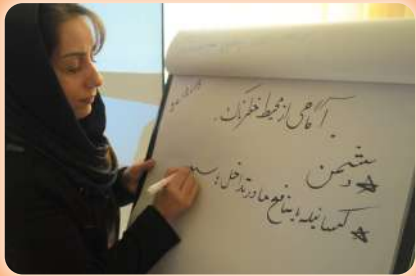 آگاهی از محیط خطرناک.
دشمن
کسانیکه با منافع ما در تداخل